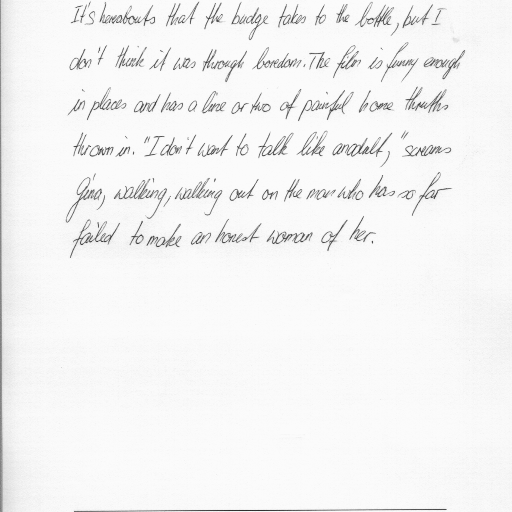 It's hereabouts that the budge takes to the bottle, but I
don't think it was through boredom. The film is funny enough
in places and has a line or two of painful home thruths
thrown in. "I don't want to talk like anadult," screams
Gina, walking, walking out on the man who has so far
failed to make an honest woman of her.